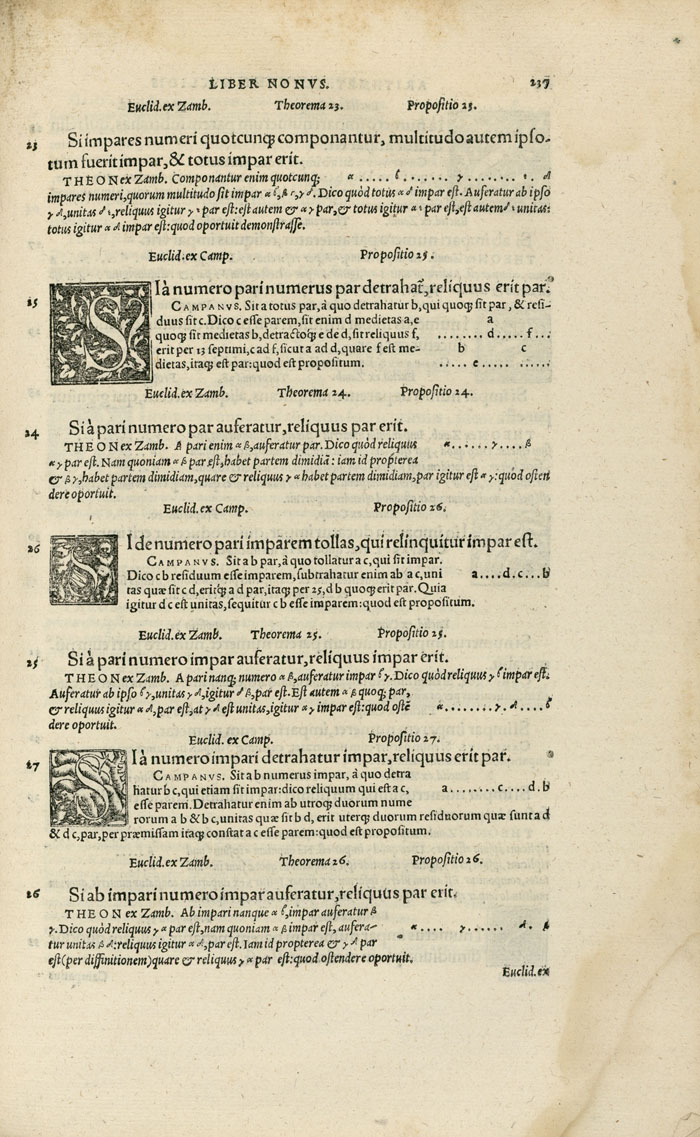 LIBER NONVS. 237
Euclid.ex Zamb. Theorema 23. Propositio 23.
23 Si impares numeri quotcunq; componantur, multitudo autem ipso-
tum fuerit impar, & totus impar erit.
THEON ex Zamb. Componantur enim quotcunq;
impares numeri, quorum multitudo sit impar α ϛ, β γ, γ δ. Dico quòd totus α δ impar est. Auferatur ab ipso
γ δ, unitas δ ε, reliquus igitur γ ε par est: est autem & α γ par, & totus igitur α ε par est, est autem δ ε unitas:
totus igitur α δ impar est: quod oportuit demonstrasse.
Euclid.ex Camp. Propositio 25.
25 SI à numero pari numerus par detrahat̃, reliquus erit par.
CAMPANVS. Sit a totus par, à quo detrahatur b, qui quoq; sit par, & resi-
duus sit c. Dico c esse parem, sit enim d medietas a, e a
quoq; sit medietas b, detractoq; e de d, sit reliquus f, ........ d....f...
erit per 13 septimi, c ad f, sicut a ad d, quare f est me- b c
dietas, itaq; est par: quod est propositum. ....e.... ......
Euclid.ex Zamb. Theorema 24. Propositio 24.
24 Si à pari numero par auferatur, reliquus par erit.
THEON ex Zamb. A pari enim α β, auferatur par. Dico quòd reliquus α......γ....β
α γ par est. Nam quoniam α β par est, habet partem dimidiã: iam id propterea
& β γ, habet partem dimidiam, quare & reliquus γ α habet partem dimidiam, par igitur est α γ: quod osten
dere oportuit.
Euclid.ex Camp. Propositio 26.
26 SI de numero pari imparem tollas, qui relinquitur impar est.
CAMPANVS. Sit a b par, à quo tollatur a c, qui sit impar.
Dico c b residuum esse imparem, subtrahatur enim ab a c, uni a....d.c...b
tas quæ sit c d, eritq; a d par, itaq; per 25, d b quoq; erit par. Quia
igitur d c est unitas, sequitur c b esse imparem: quod est propositum.
Euclid.ex Zamb. Theorema 25. Propositio 25.
25 Si à pari numero impar auferatur, reliquus impar erit.
THEON ex Zamb. A pari nanq; numero α β, auferatur impar ϛ γ. Dico quòd reliquus γ ϛ impar est.
Auferatur ab ipso ϛ γ, unitas γ δ, igitur δ β, par est. Est autem α β quoq; par,
& reliquus igitur α δ, par est, at γ δ est unitas, igitur α γ impar est: quod ostẽ α........γ. δ....ϛ
dere oportuit.
Euclid. ex Camp. Propositio 27.
27 SI à numero impari detrahatur impar, reliquus erit par.
CAMPANVS. Sit a b numerus impar, à quo detra
hatur b c, qui etiam sit impar: dico reliquum qui est a c, a........c....d.b
esse parem. Detrahatur enim ab utroq; duorum nume
rorum a b & b c, unitas quæ sit b d, erit uterq; duorum residuorum quæ sunt a d
& d c, par, per præmissam itaq; constat a c esse parem: quod est propositum.
Euclid.ex Zamb. Theorema 26. Propositio 26.
26 Si ab impari numero impar auferatur, reliquus par erit.
THEON ex Zamb. Ab impari nanque α ϛ, impar auferatur β
γ. Dico quòd reliquus γ α par est, nam quoniam α β impar est, aufera- α.... γ...... δ. β
tur unitas β δ: reliquus igitur α δ, par est. Iam id propterea & γ δ par
est (per diffinitionem) quare & reliquus γ α par est: quod ostendere oportuit.
Euclid.ex